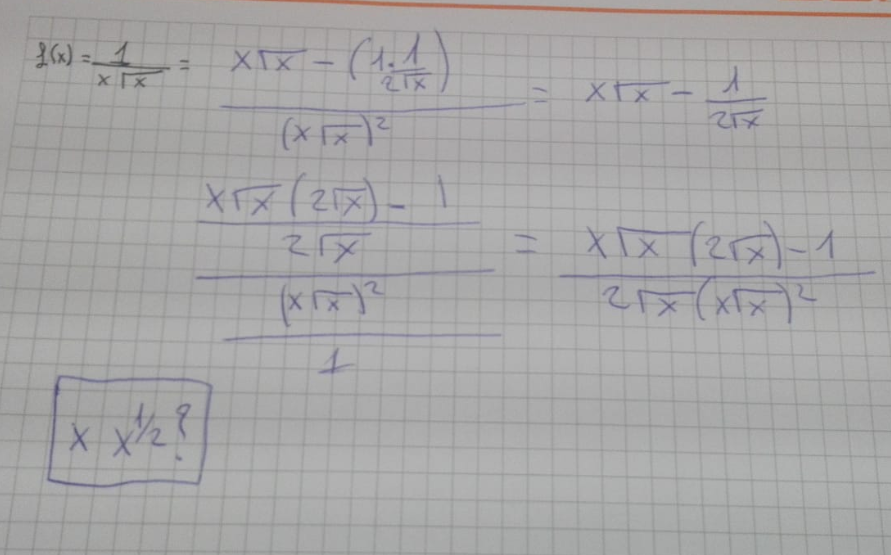 f(x) = 1/(x√x) = (x√x - (1·1/(2√x)))/(x√x)² = x√x - 1/(2√x)
((x√x (2√x) - 1)/(2√x))/((x√x)²/1) = (x√x (2√x) - 1)/(2√x (x√x)²)
x x^1/2 ?